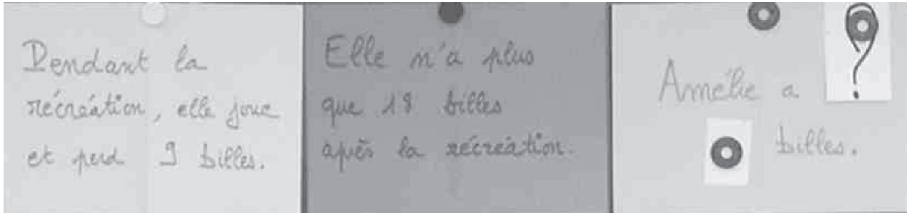 Pendant la
récréation, elle joue
et perd 9 billes.
Elle n'a plus
que 18 billes
après la récréation.
Amélie a ?
billes.